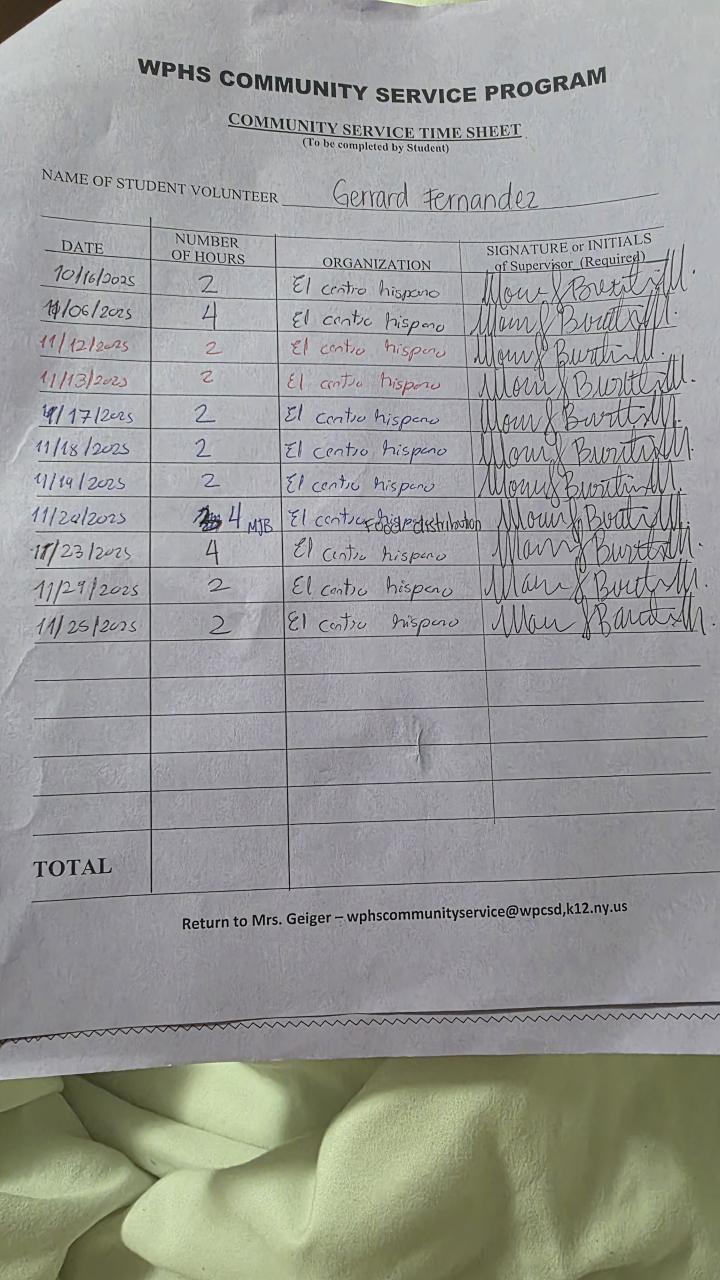 WPHS COMMUNITY SERVICE PROGRAM
COMMUNITY SERVICE TIME SHEET
(To be completed by Student)
NAME OF STUDENT VOLUNTEER Gerrard Fernandez
DATE NUMBER OF HOURS ORGANIZATION SIGNATURE or INITIALS of Supervisor (Required)
10/16/2025 2 El centro hispano
11/06/2025 4 El centro hispano
11/12/2025 2 El centro hispano
11/13/2025 2 El centro hispano
11/17/2025 2 El centro hispano
11/18/2025 2 El centro hispano
11/19/2025 2 El centro hispano
4 MJB El centro Food distribution
11/23/2025 4 El centro hispano
2 El centro hispano
11/25/2025 2 El centro hispano
TOTAL
Return to Mrs. Geiger – wphscommunityservice@wpcsd,k12.ny.us